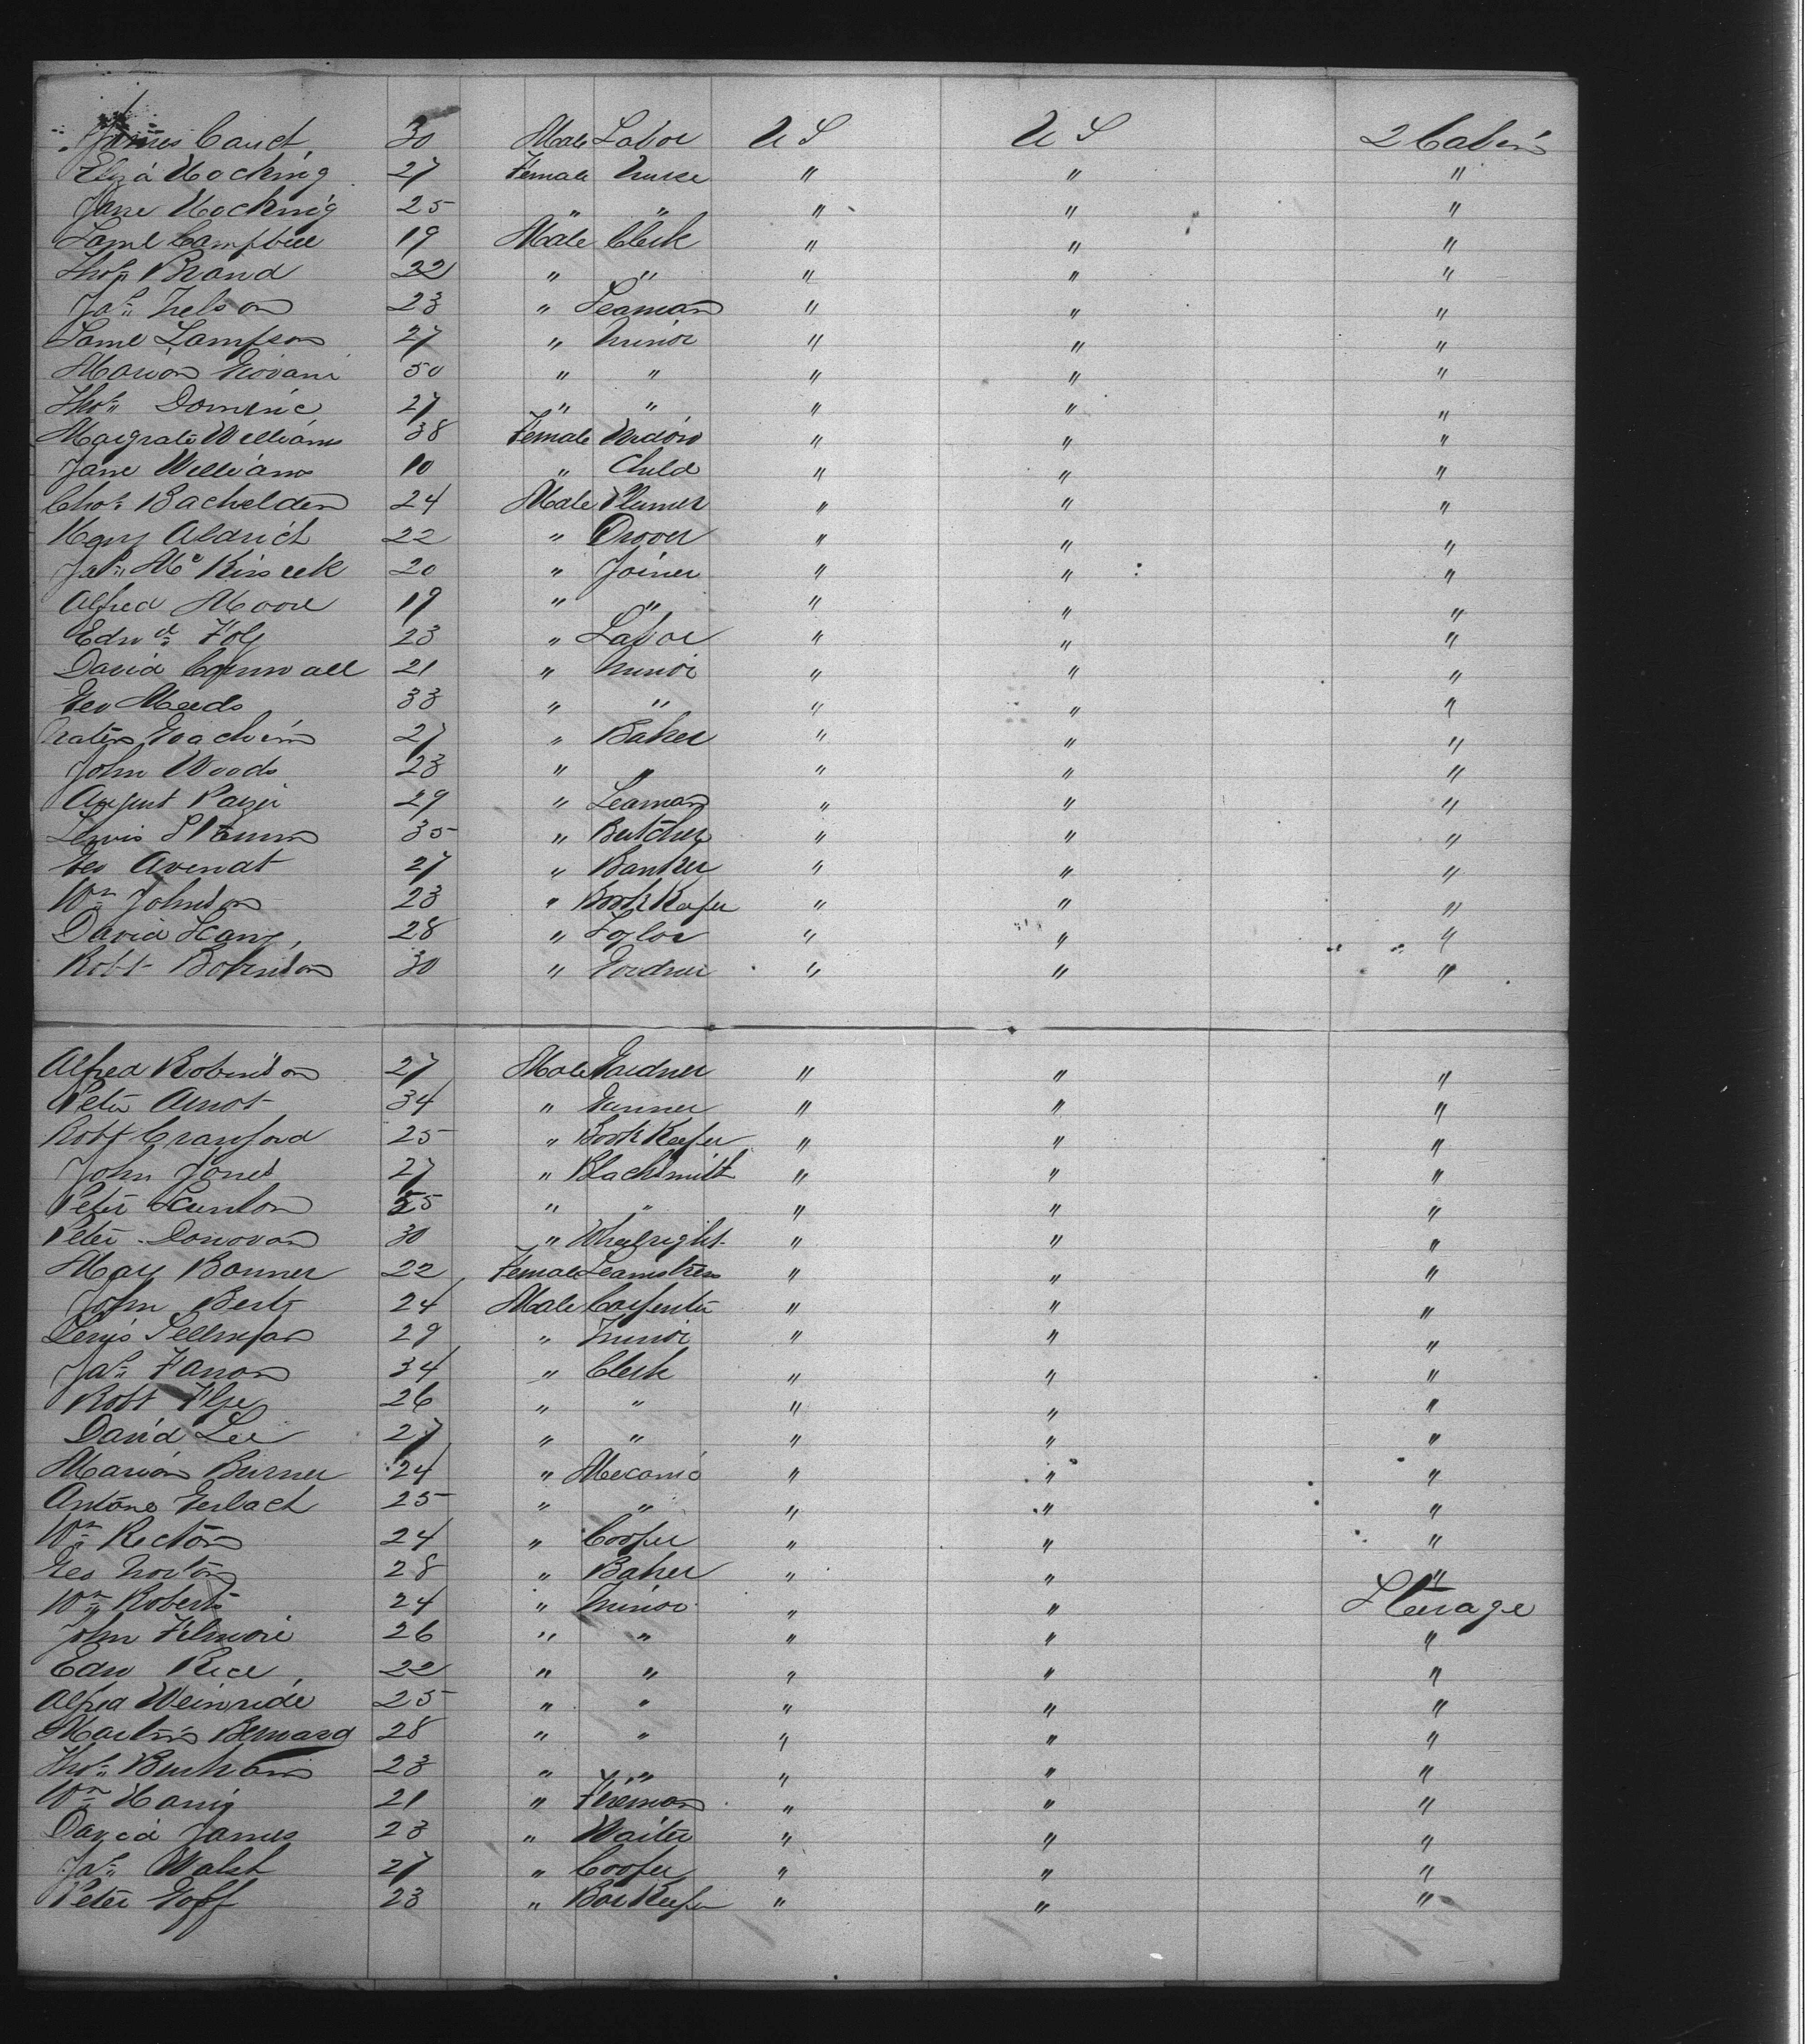 James 30 Male Labor U S U S 2 Cabin
Eliza Hocking 27 Female Nurse " " "
Jane Hocking 25 " " " " "
Saml Campbell 19 Male Clerk " " "
Thos Brand 22 " " " " "
Jas Nelson 23 " Seaman " " "
Saml Sampson 27 " Minor " " "
Marion Giovani 50 " " " " "
Thos Dominic 27 " " " " "
Margrate Williams 38 Female Widow " " "
Jane Williams 10 " Child " " "
Chos Bachelden 24 Male Plumer " " "
Henry Aldrich 22 " Drover " " "
Jas Mc 20 " Joiner " " "
Alfred Moore 19 " " " " "
Edwd Foly 23 " Labor " " "
David Cornwall 21 " Minor " " "
Geo Meeds 33 " " " " "
Goachim 27 " Baker " " "
John Woods 23 " " " " "
August 29 " Seaman " " "
Lewis 35 " Butcher " " "
Geo Avendt 27 " Banker " " "
Wm Johnson 23 " Book Keper " " "
David 28 " Tylor " " "
Robt Robinson 30 " Gordner " " "
Alfred Robinson 27 Male Gardner " " "
Peter Arnot 34 " Gunner " " "
Robt Crawford 25 " Book Keeper " " "
John Jones 27 " Blacksmith " " "
Peter Scunlon 55 " " " " "
Peter Donovan 30 " Wheelright " " "
Mary Bonner 22 Female Seamstress " " "
John Bertz 24 Male Carpenter " " "
Lewis Sellman 29 " Minor " " "
Jas Fanon 34 " Clerk " " "
Robt 26 " " " " "
David Lee 27 " " " " "
Marion Burner 24 " Mecanic " " "
Antone Gerlach 25 " " " " "
Wm Rector 24 " Cooper " " "
Geo Norton 28 " Baker " " "
Wm Roberts 24 " Minor " " Sterage
John Filmore 26 " " " " "
Edw Rice 22 " " " " "
Alfred Weinride 25 " " " " "
Martin Bernard 28 " " " " "
Thos 23 " " " " "
Wm Hanig 21 " Fireman " " "
David James 23 " Waiter " " "
Jas Walsh 27 " Cooper " " "
Peter Goff 23 " Bar Keeper " " "